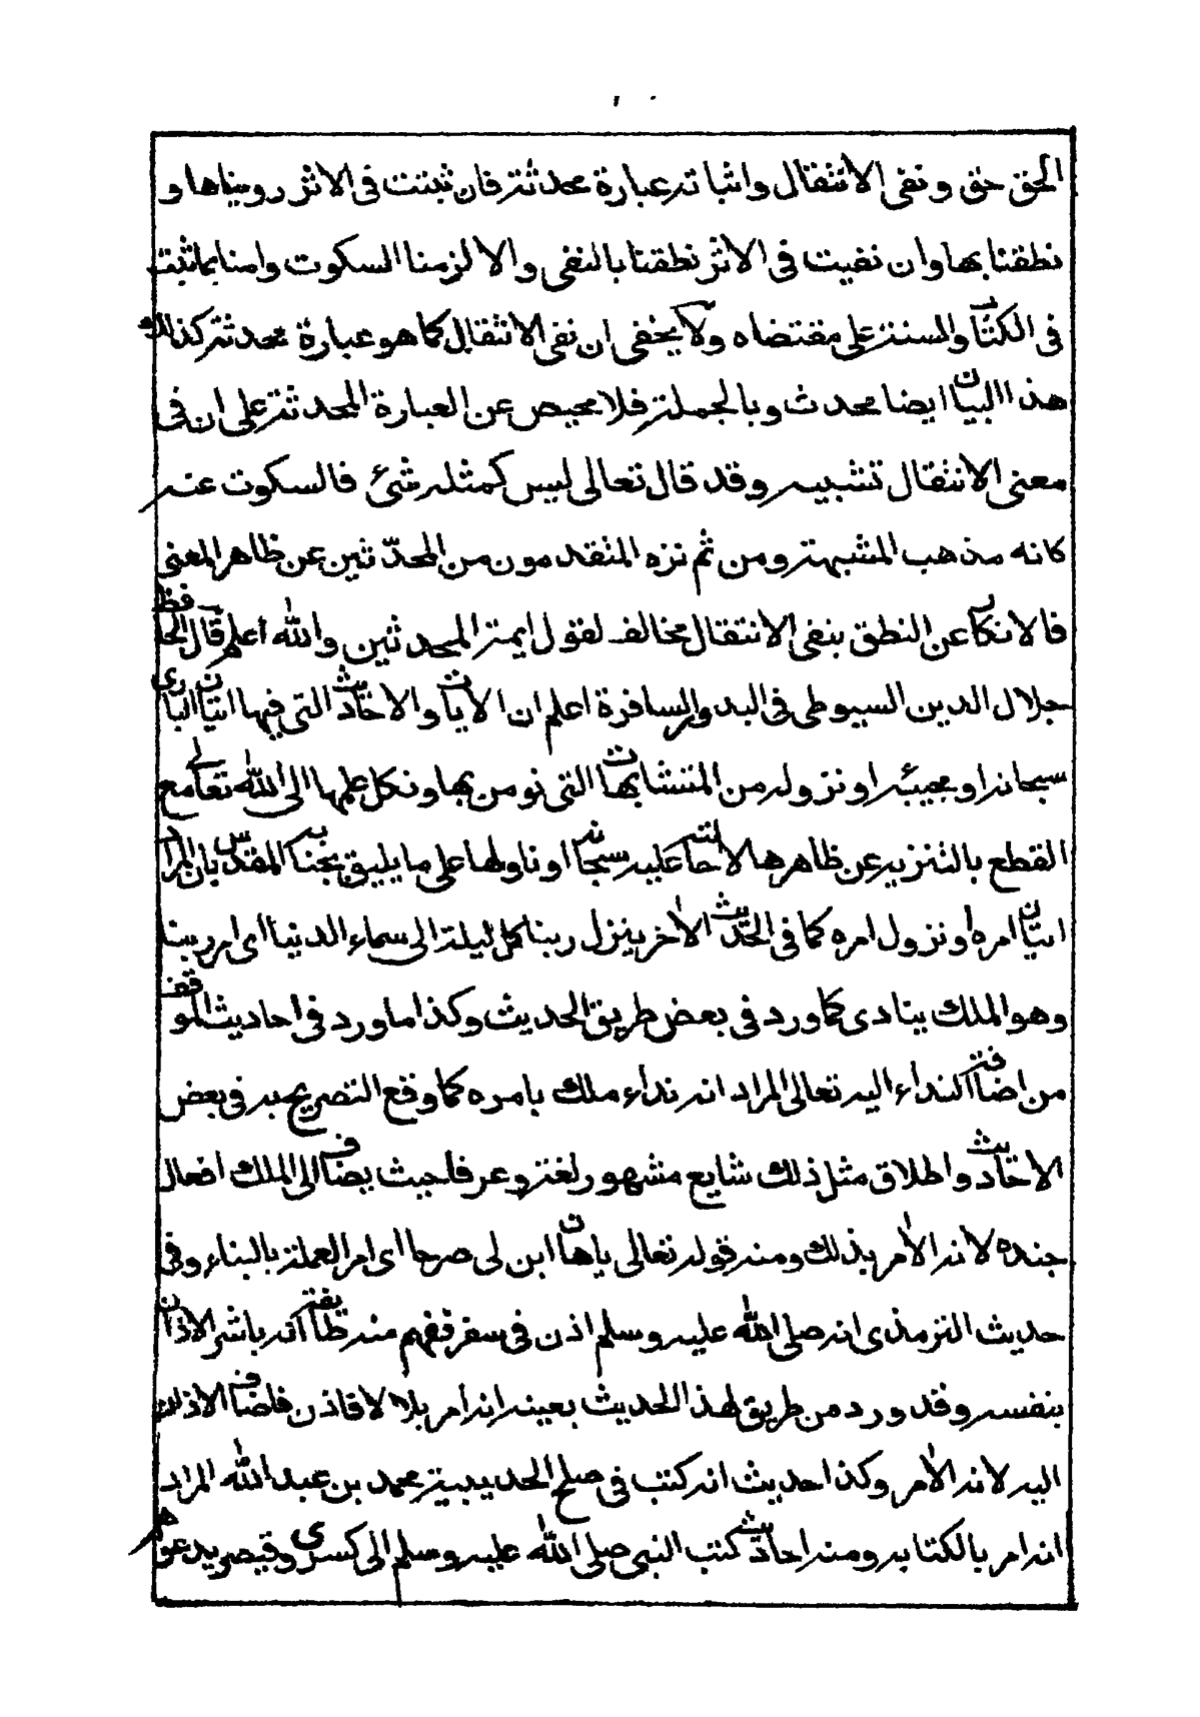 الحق حق ونفى الانتقال واثباته عبارة محدثة فان ثبتت فى الاثر رويناها و
نطقنا بها وان نفيت فى الاثر نطقنا بالنفى والا لزمنا السكوت وامنا بما ثبت
فى الكتاب والسنة على مقتضاه ولا يخفى ان نفى الانتقال كما هو عبارة محدثة كذلك
هذا البيان ايضا محدث وبالجملة فلا محيص عن العبارة المحدثة على ان فى
معنى الانتقال تشبيه وقد قال تعالى ليس كمثله شئ فالسكوت عنه
كانه مذهب المشبهة ومن ثم نزه المتقدمون من المحدّثين عن ظاهر المعنى
فالانكار عن النطق بنفى الانتقال مخالف لقول ايمة المحدثين والله اعلم قال الحافظ
جلال الدين السيوطى فى البدور السافرة اعلم ان الايات والاحاديث التى فيها اتيان البارى
سبحانه او مجيئه او نزوله من المتشابهات التى نومن بها ونكل علمها الى الله تعالى مع
القطع بالتنزيه عن ظاهرها لاستحالته عليه سبحانه او ناولها على ما يليق بجنابه المقدس بان المراد
اتيان امره او نزول امره كما فى الحديث الاخر ينزل ربنا كل ليلة الى سماء الدنيا اى امر ربنا
وهو الملك ينادى كما ورد فى بعض طريق الحديث وكذا ما ورد فى احاديث الموقف
من اضافة النداء اليه تعالى المراد انه نداء ملك بامره كما وقع التصريح به فى بعض
الاحاديث واطلاق مثل ذلك شايع مشهور لغة وعرفا حيث يضاف الى الملك افعال
جنده لانه الامر بذلك ومنه قوله تعالى ياهامان ابن لى صرحا اى امر العملة بالبناء وفى
حديث الترمذى انه صلى الله عليه وسلم اذن فى سفر ففهم منه طايفة انه باشر الاذان
بنفسه وقد ورد من طريق لهذا الحديث بعينه انه امر بلالا فاذن فاضاف الاذان
اليه لانه الامر وكذا حديث انه كتب فى صلح الحديبية محمد بن عبد الله المراد
انه امر بالكتابه ومنه احاديث كتب النبى صلى الله عليه وسلم الى كسرى وقيصر يدعوهم